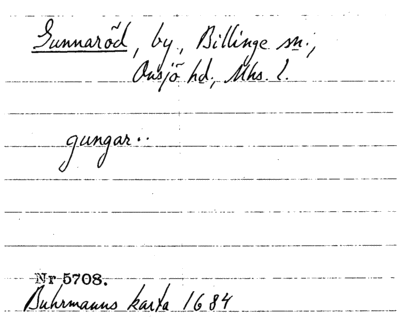 Gunnaröd, by., Billinge sn.,
Onsjö hd., Mhs. l.
gungar..
Nr 5708.
Buhrmanns karta 1684